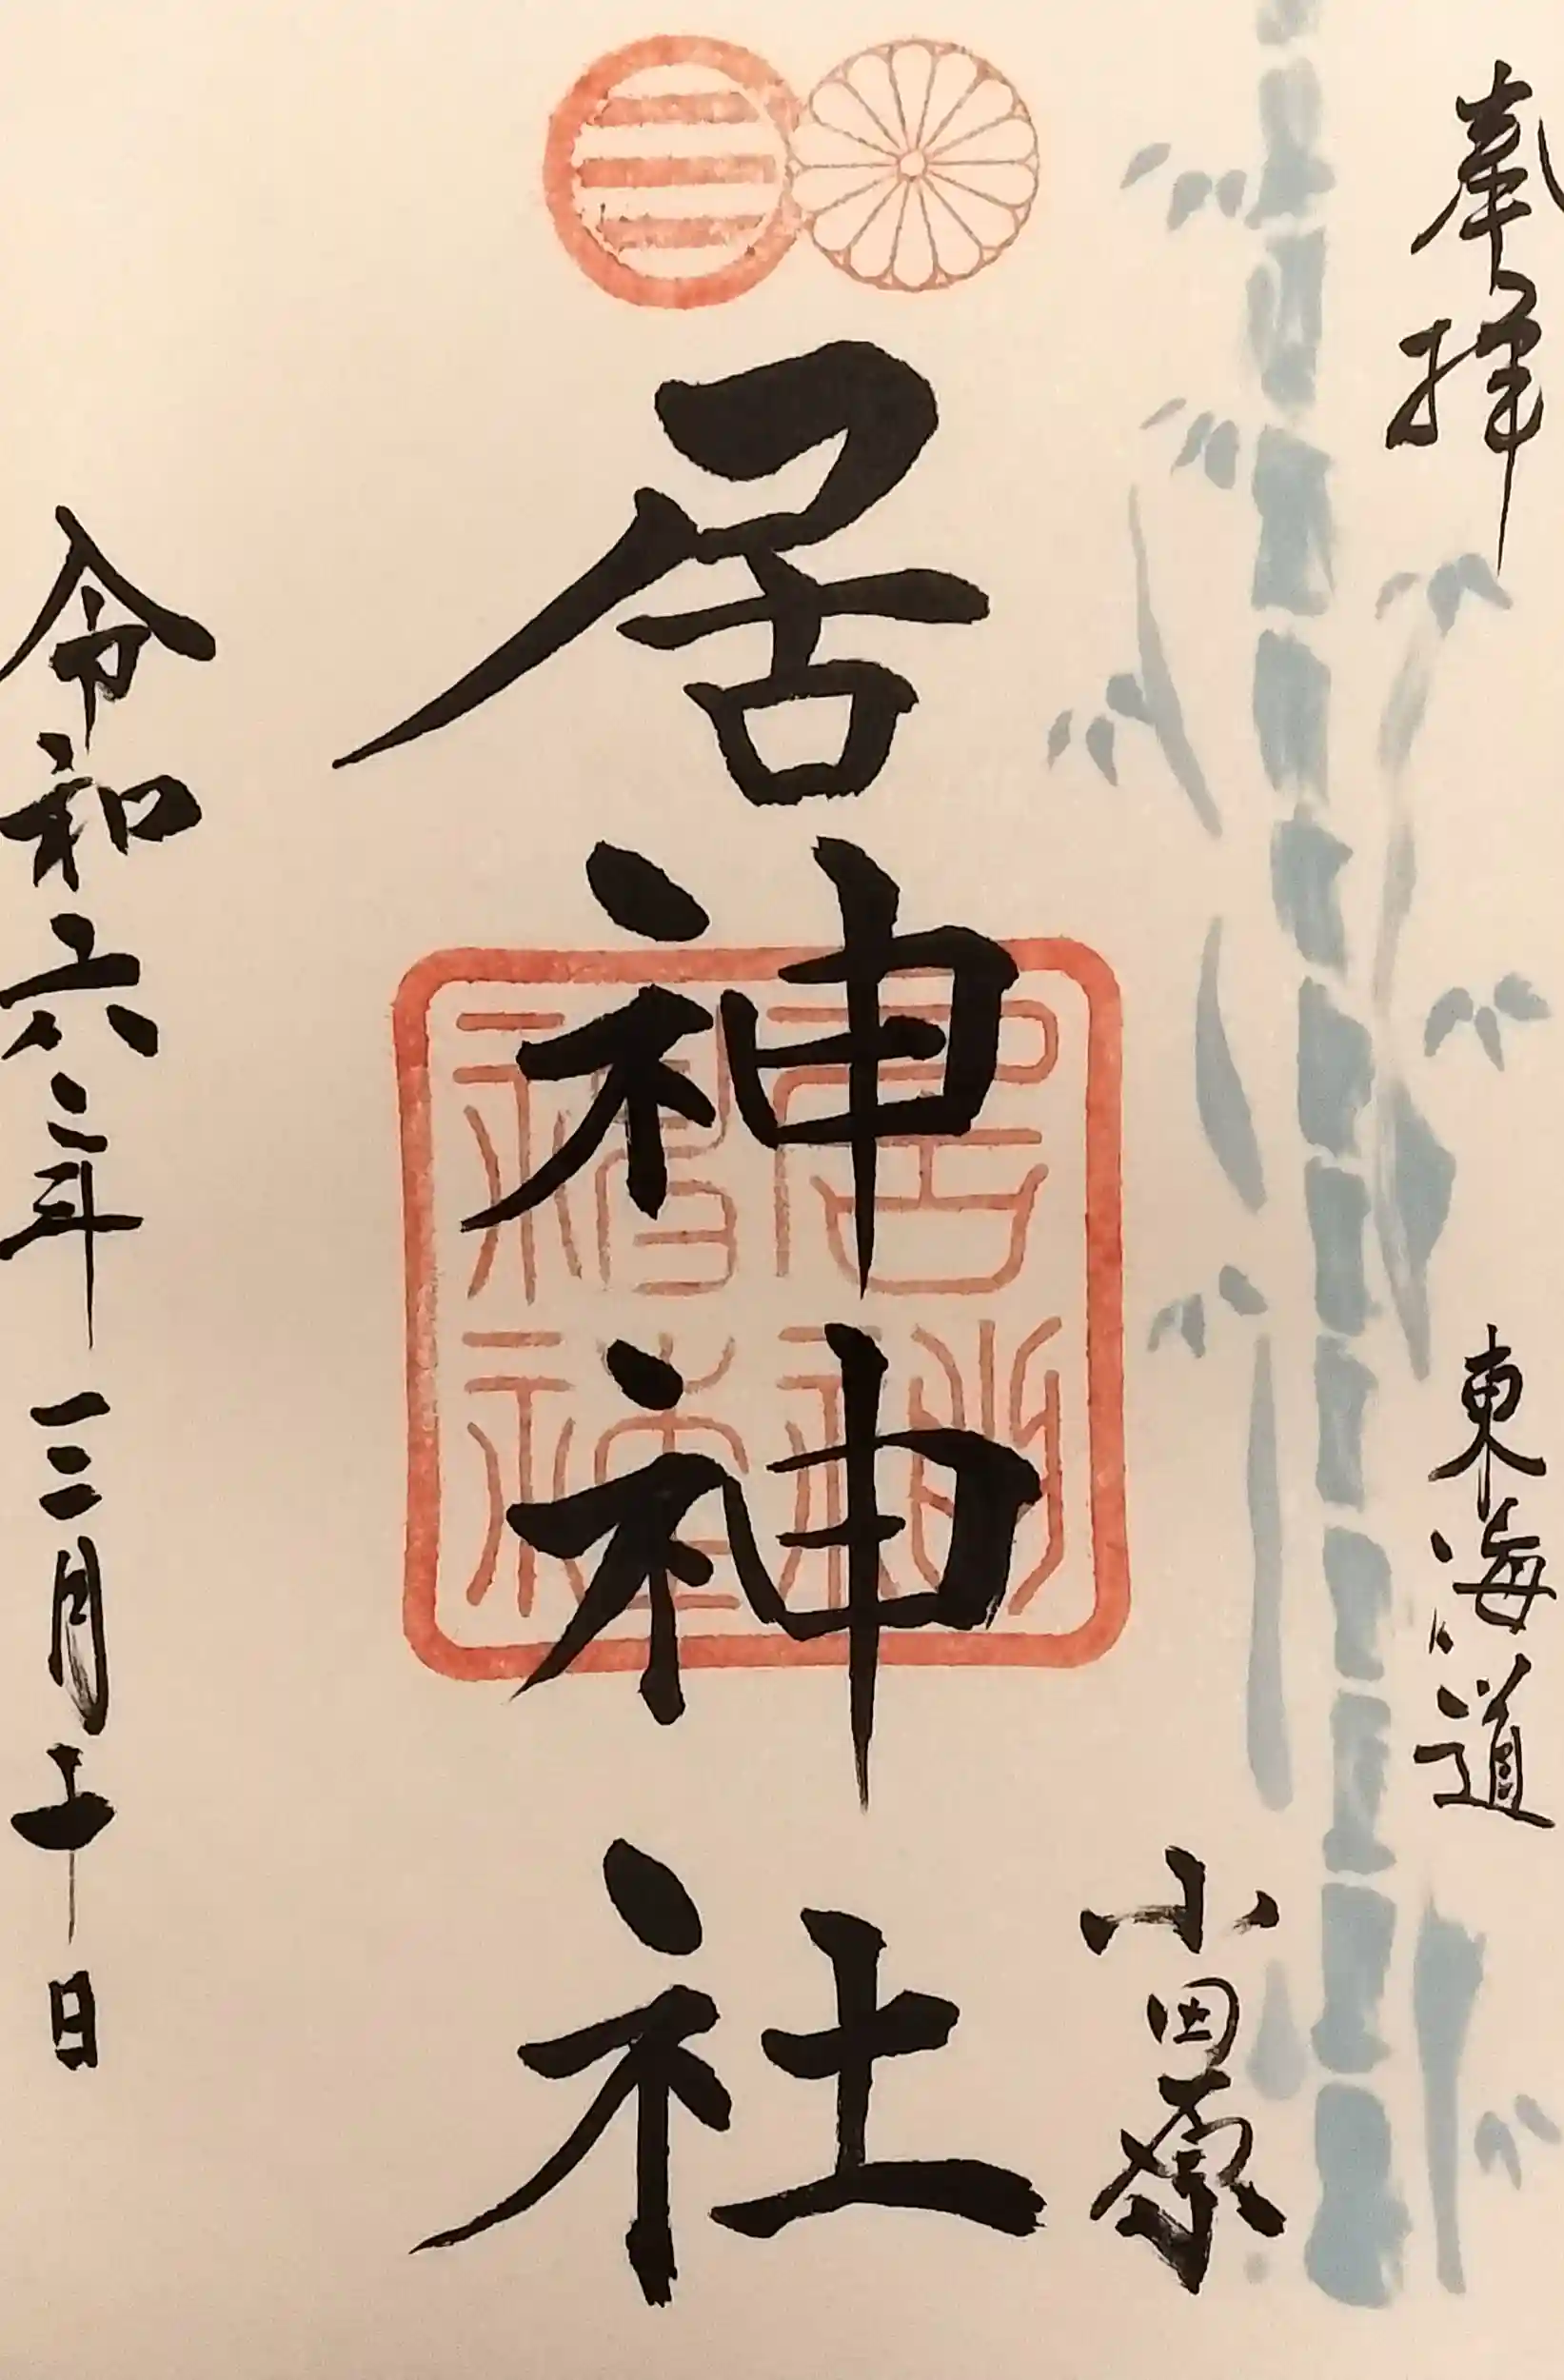 奉拝
東海道
小田原
居神神社
居神神社
令和六年三月十日